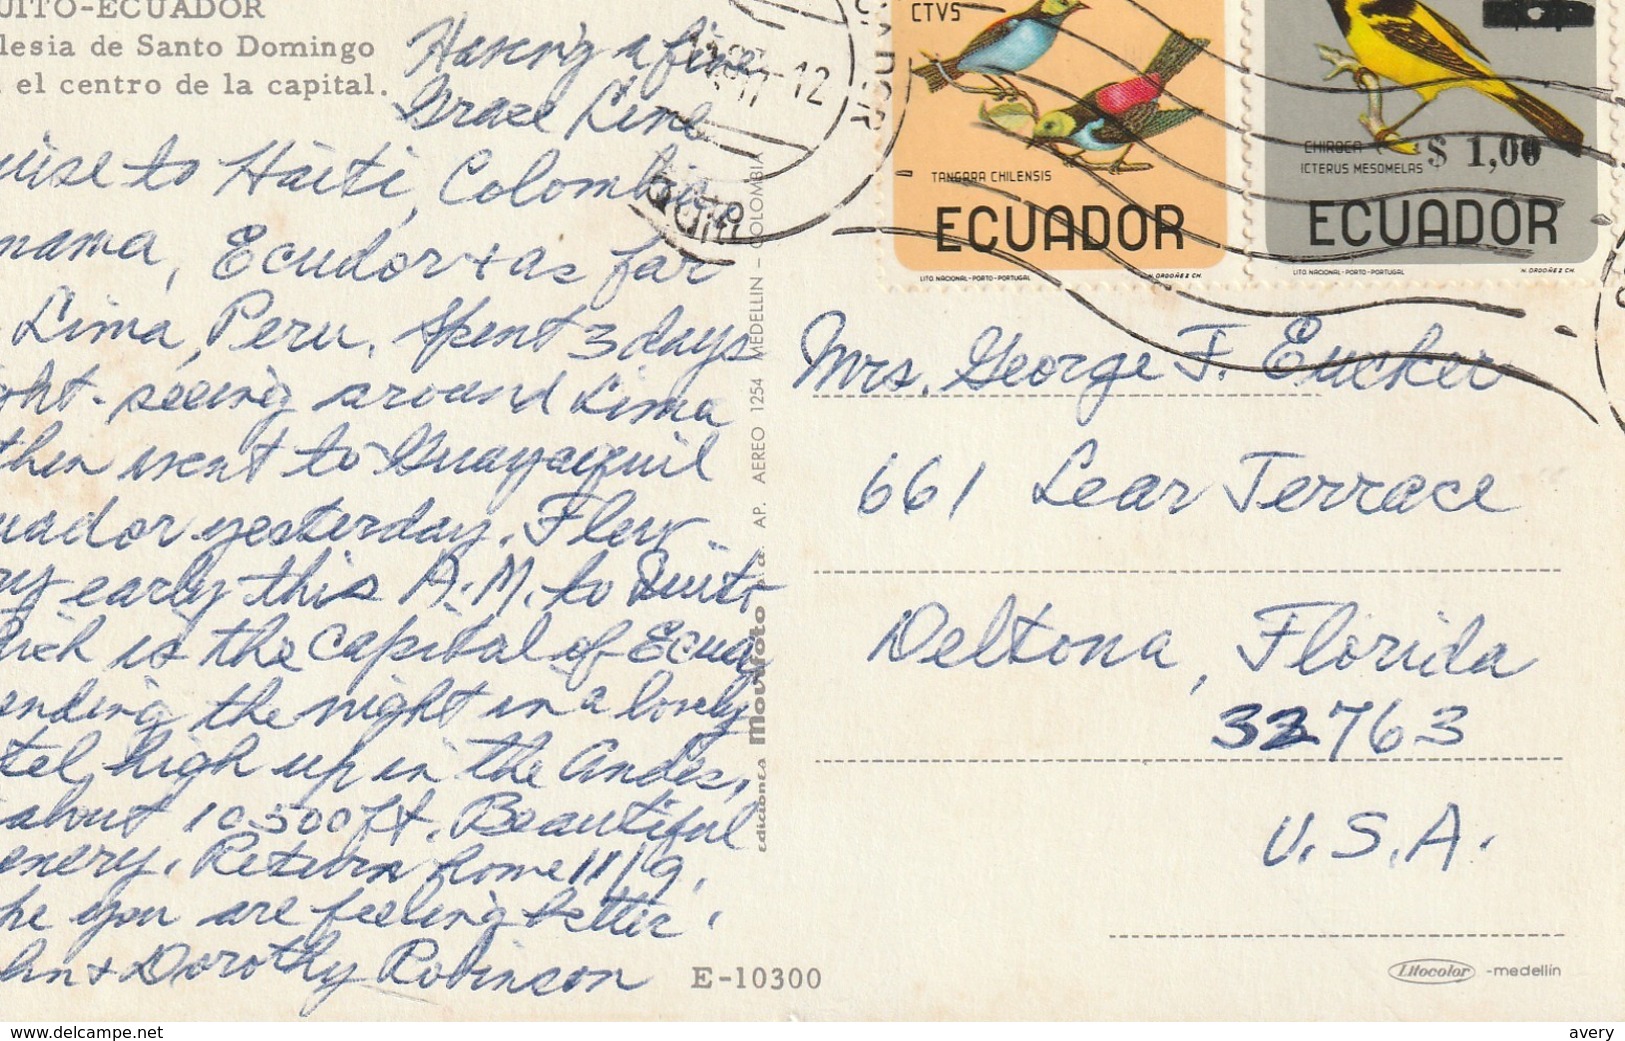 UITO-ECUADOR
lesia de Santo Domingo
el centro de la capital.
Having a fine
Grace Line
uise to Haiti, Colombia
nama, Ecudor & as far
Lima, Peru. Spent 3 days
ght-seeing around Lima
then went to Guayaquil
uador yesterday. Flew
ry early this A.M. to Quito
hich is the capital of Ecua
ending the night in a lovely
tel, high up in the Andes,
about 10,500 ft. Beautiful
enery. Return home 11/19.
pe you are feeling better.
ohn & Dorothy Robinson
E-10300
ediciones Movifoto s.a. AP. AEREO 1254 MEDELLIN - COLOMBIA
12
Quito
CTVS
TANGARA CHILENSIS
ECUADOR
LITO. NACIONAL-PORTO-PORTUGAL
N. ORDOÑEZ CH.
CHIROCA
ICTERUS MESOMELAS
$ 1,00
ECUADOR
LITO. NACIONAL-PORTO-PORTUGAL
N. ORDOÑEZ CH.
Mrs. George F. Eucker
661 Lear Terrace
Deltona, Florida
32763
U.S.A.
Litocolor -medellin
www.delcampe.net
avery